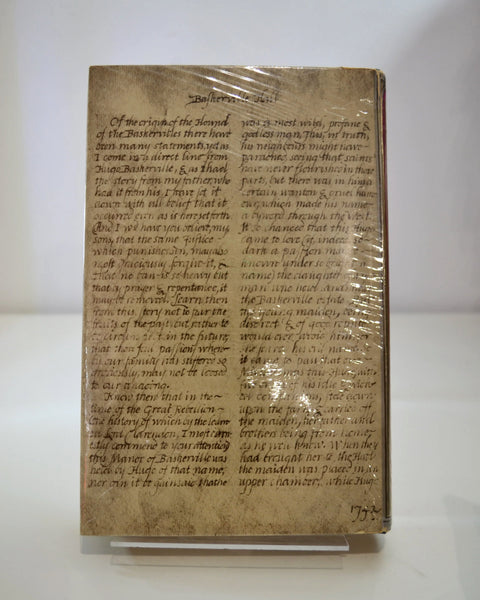 Baskerville Hall
Of the origin of the Hound
of the Baskervilles there have
been many statements, yet as
I come in a direct line from
Hugo Baskerville, & as I had
the story from my father, who
had it from his, I have set it
down with all belief that it
occurred even as is here set forth.
And I would have you believe, my
sons, that the same Justice
which punishes sin, may also
most graciously forgive it, &
that no ban is so heavy but
that by prayer & repentance, it
may be removed. Learn then
from this story not to fear the
fruits of the past, but rather to
be circumspect in the future,
that those foul passions where-
by our family has suffered so
grievously, may not be loosed
to our undoing.
Know then that in the
time of the Great Rebellion
(the history of which by the learn-
Lord Clarendon, I most earn-
estly commend to your attention)
this Manor of Baskerville was
held by Hugo of that name,
nor can it be gainsaid that he
was a most wild, profane &
godless man. This, in truth,
his neighbours might have
pardoned, seeing that saints
have never flourished in those
parts, but there was in him a
certain wanton & cruel hum-
our, which made his name
a byword through the West.
It so chanced that this Hugo
came to love (if, indeed, so
dark a passion may be
known under so bright a
name) the daughter of a
man who held land near
the Baskerville estate.
the young maiden,
discreet & of good repute,
would ever avoid him, for
she feared his evil name.
it came to pass that
this Hugo, with
five or six of his idle
companions, stole down
upon the farm & carried off
the maiden, her father and
brothers being from home,
as he well knew. When they
had brought her to the Hall
the maiden was placed in an
upper chamber, while Hugo
1742